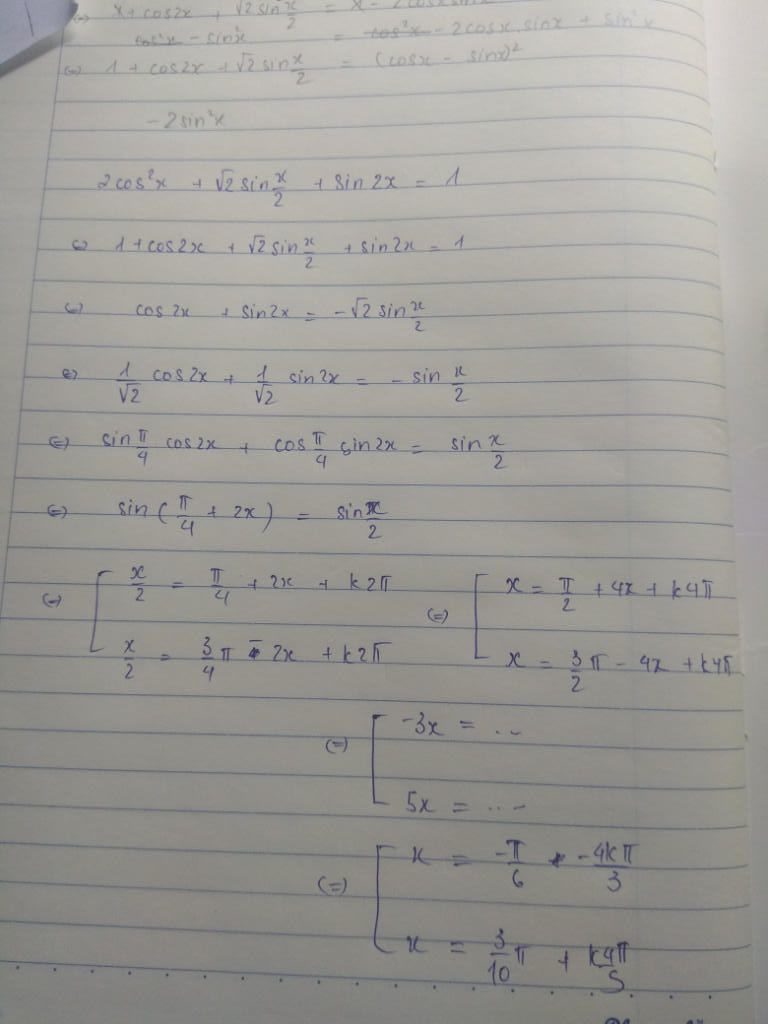 (=) x + cos2x + √2 sin x/2 = x - 2cosx sinx
cos²x - sin²x = cos²x - 2cosx.sinx + sin²x
(=) 1 + cos2x + √2 sin x/2 = (cosx - sinx)²
-2sin²x
2cos²x + √2 sin x/2 + sin 2x = 1
(=) 1 + cos2x + √2 sin x/2 + sin2x = 1
(=) cos 2x + sin 2x = -√2 sin x/2
(=) 1/√2 cos2x + 1/√2 sin 2x = - sin x/2
(=) sin π/4 cos2x + cos π/4 sin 2x = sin x/2
(=) sin ( π/4 + 2x ) = sin x/2
(=) [ x/2 = π/4 + 2x + k2π (=) [ x = π/2 + 4x + k4π
x/2 = 3/4 π - 2x + k2π x = 3/2 π - 4x + k4π
(=) [ -3x = ...
5x = ...
(=) [ x = -π/6 -4kπ/3
x = 3/10 π + k4π/5